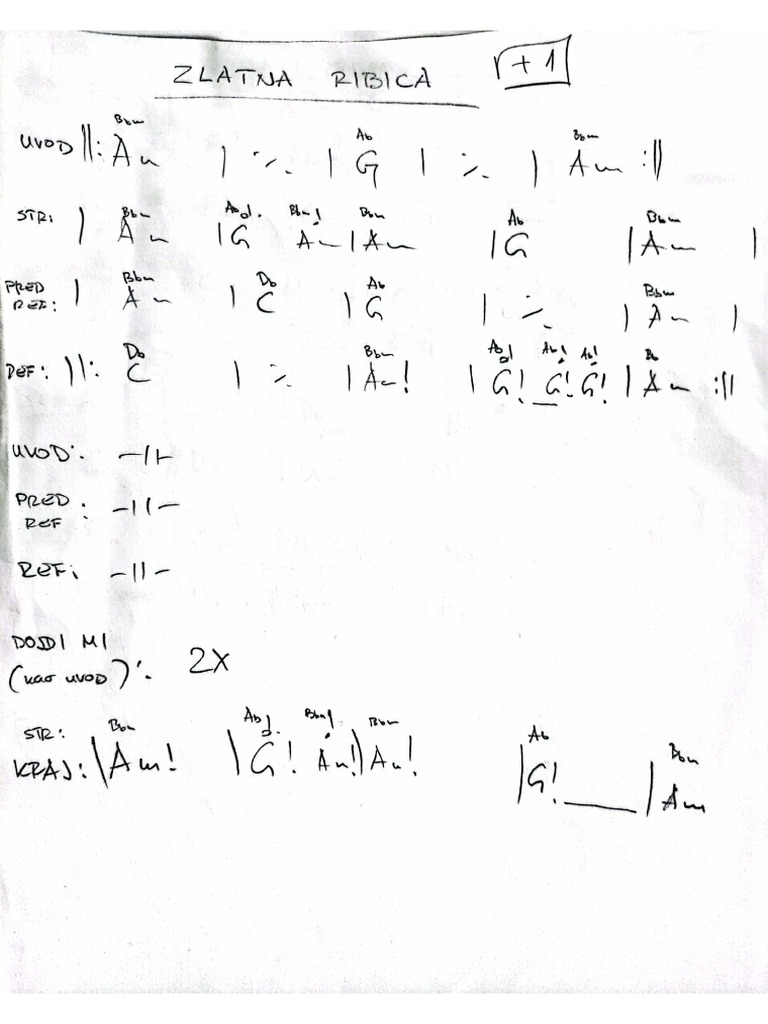 ZLATNA RIBICA r+1
Bbm Ab Bbm
UVOD ||: Am | ٪ | G | ٪ | Am :||
Bbm Ab Bbm! Bbm Ab Bbm
STR: | Am | G Am | Am | G | Am |
Bbm Db Ab Bbm
PRED REF: | Am | C | G | ٪ | Am |
Db Bbm Ab Ab! Ab! Bb
REF: ||: C | ٪ | Am! | G! G! G! | Am :||
UVOD: -||-
PRED REF: -||-
REF: -||-
DOJDI MI
(kao uvod): 2X
STR: Bbm Ab Bbm! Bbm Ab Bbm
KRAJ: | Am! | G! Am! | Am! | G! ___ | Am